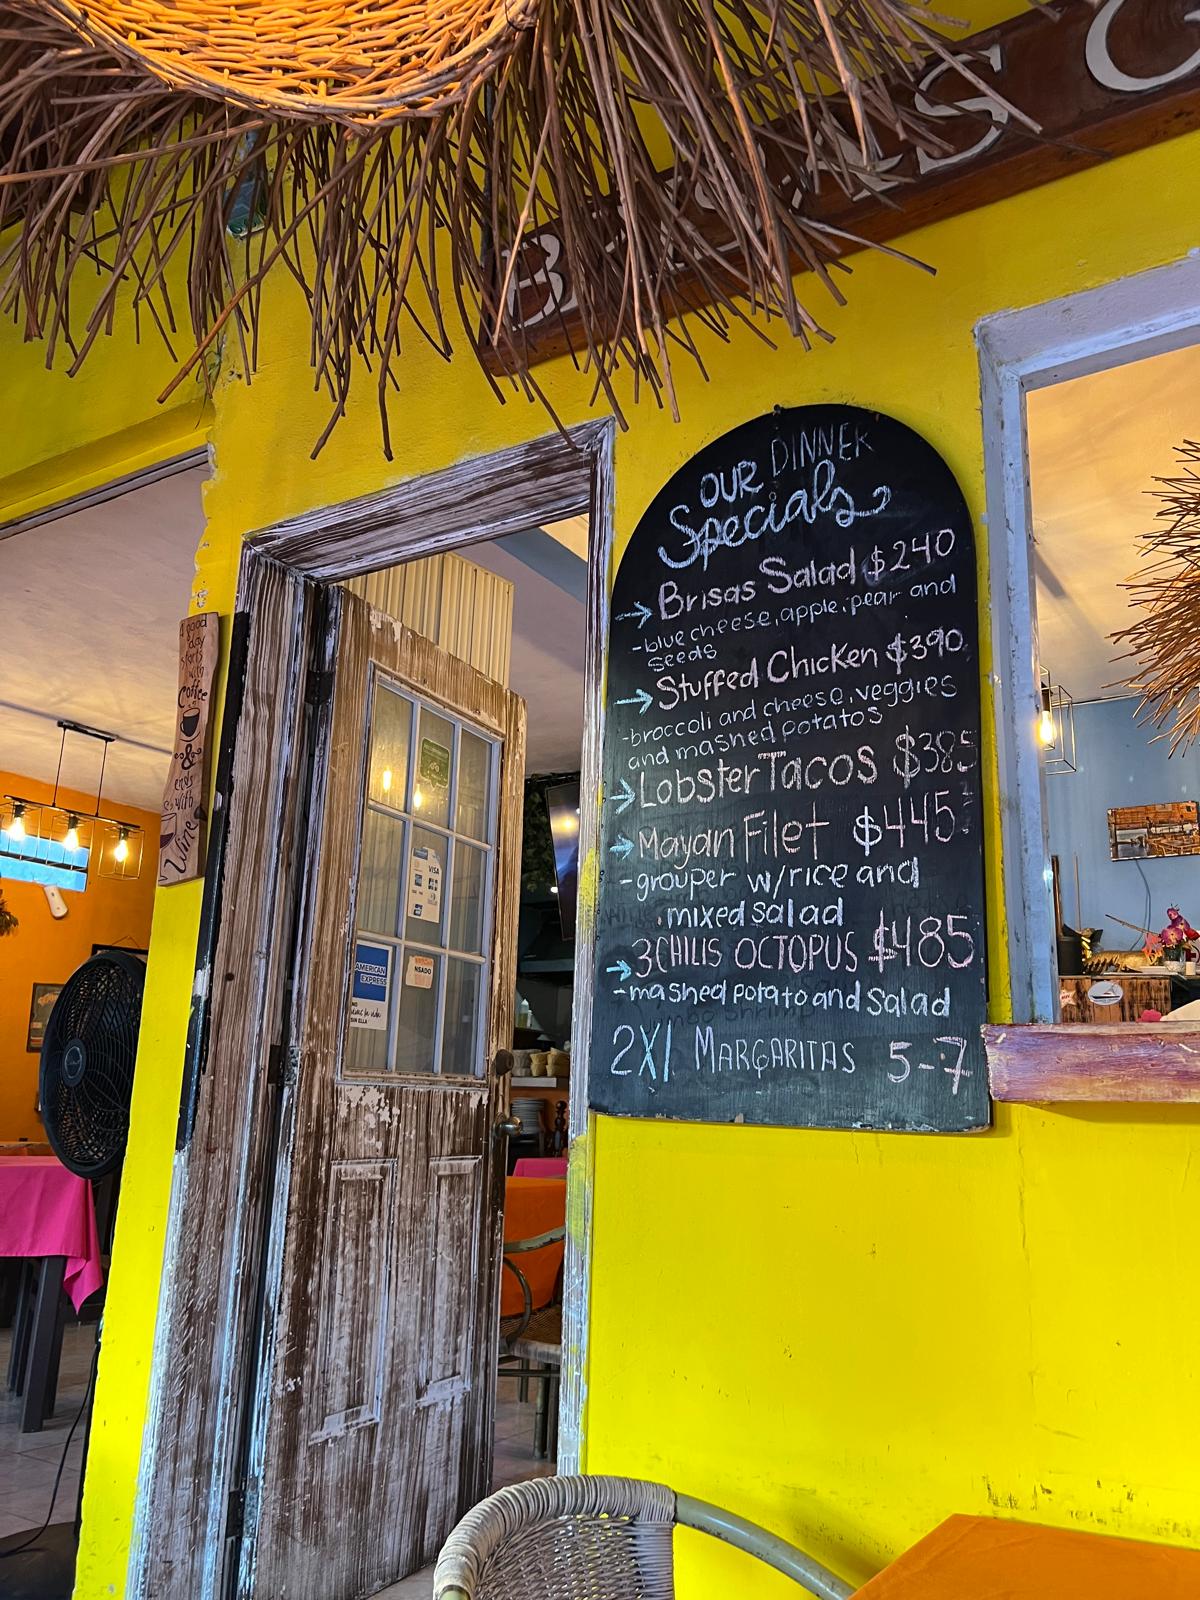 OUR DINNER
Specials
→ Brisas Salad $240
-blue cheese, apple, pear and
seeds
→ Stuffed Chicken $390
-broccoli and cheese, veggies
and mashed potatos
→ Lobster Tacos $385
→ Mayan Filet $445
-grouper w/rice and
mixed salad
→ 3CHILIS OCTOPUS $485
-mashed potato and Salad
2X1 MARGARITAS 5-7
a good
day
starts
with
Coffee
&
ends
with
Wine
VISA
AMERICAN
EXPRESS